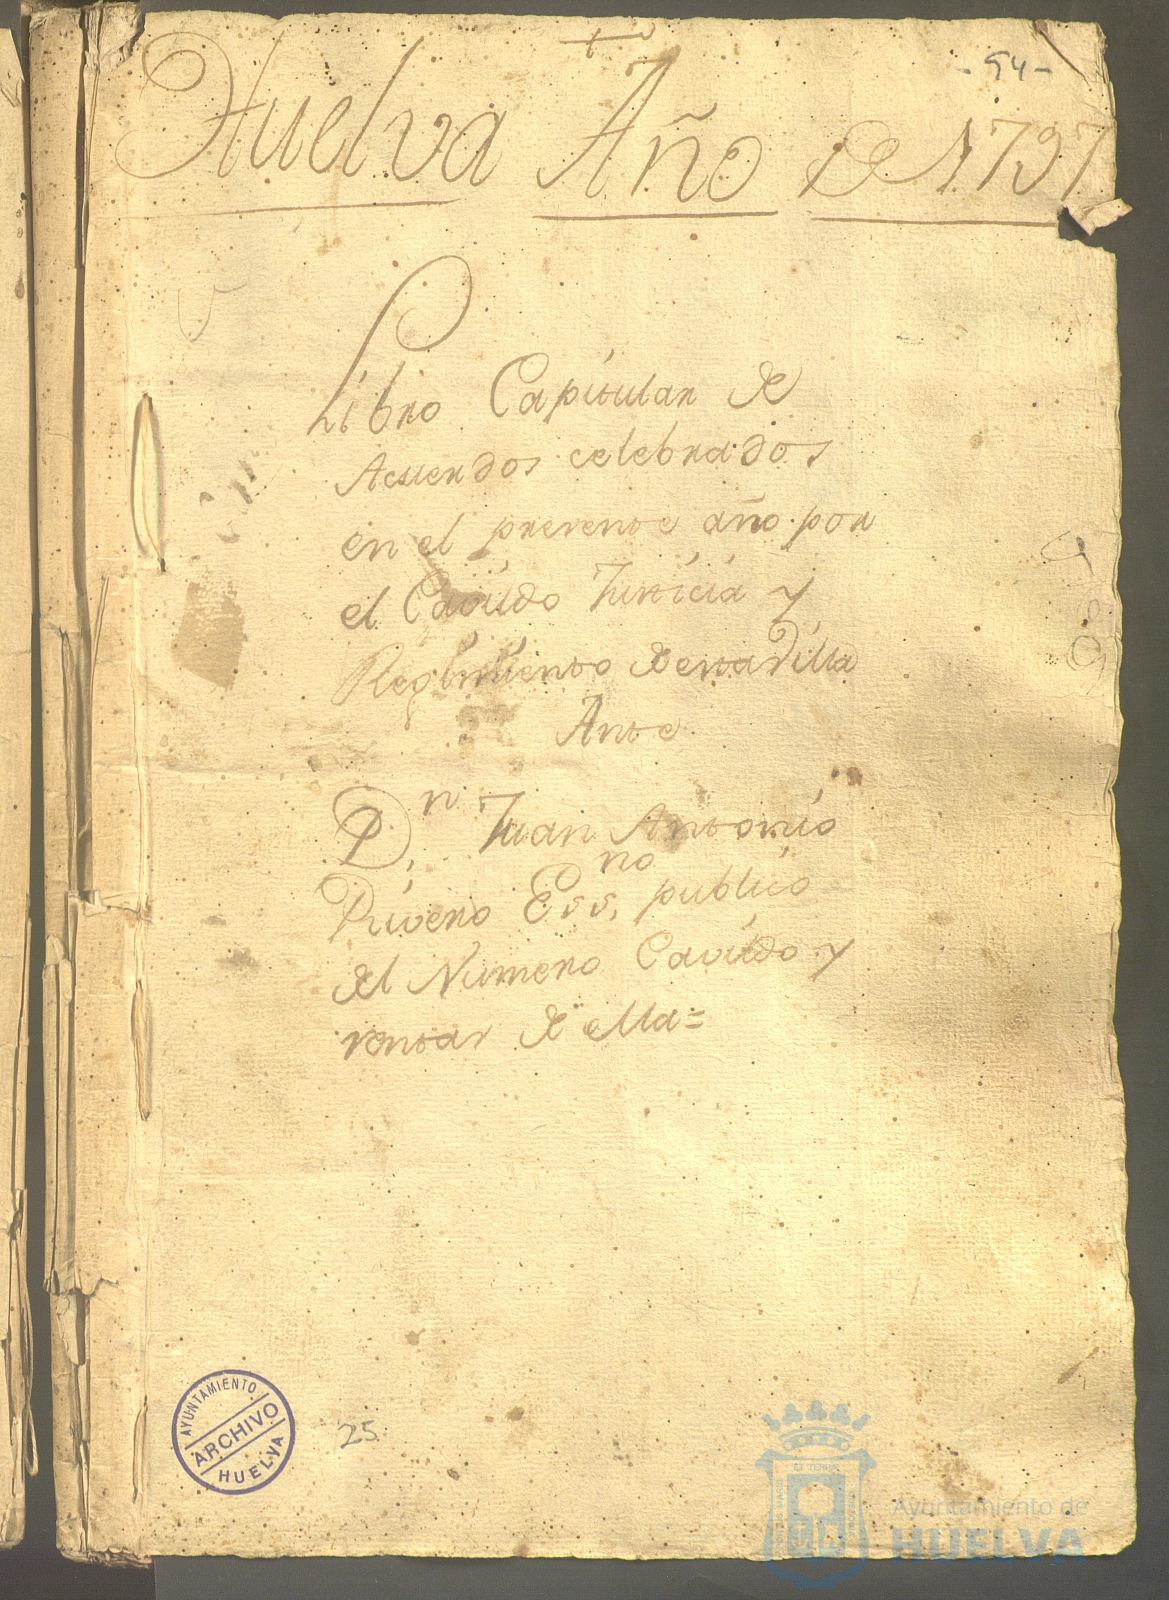 - 54 -
Huelva Año de 1797
Libro Capitular de
Acuerdos celebrados
en el presente año por
el Cavildo Justicia y
Regimiento de esta Villa
Ante
Dn. Juan Antonio
Rivero Essno. publico
del Numero Cavildo y
rentas de ella=
25
AYUNTAMIENTO
ARCHIVO
HUELVA
Ayuntamiento de
HUELVA